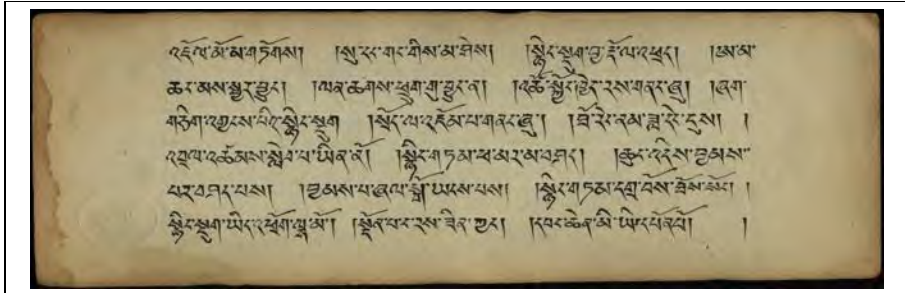 འཛོལ་མོ་མ་གཏོགས། །སུ་དང་གང་གིས་མ་ཤེས། །སྙིང་སྡུག་བྱ་རྡོ་ལ་འཕྲད། །ཨ་མ་
ཆང་མས་སྦྱར་བྱུང་། །ལན་ཆགས་ཕྲུག་གུ་བྱུང་ན། །འཚོ་སྐྱོང་ཁྱེད་རས་གནང་ཞུ། །ཞག་
གཅིག་འགྱངས་པའི་སྙིང་སྡུག །སྲོད་ལ་འཛོམ་པ་གནང་ཞུ། །ཐོ་རེ་ནམ་ཟླ་དེ་དུས། །
འབྲལ་འཚོམས་སླེབ་པ་ཡིན་ནོ། །སྙིང་གཏམ་ཕ་མར་མ་བཤད། །ཆུང་འདྲིས་བྱམས་
པར་བཤད་པས། །བྱམས་པ་ཞལ་སྒོ་ཡངས་པས། །སྙིང་གཏམ་དགྲ་བོས་ཐོས་སོང་། །
སྙིང་སྡུག་ཡིད་འཕྲོག་ལྷ་མོ། །རྔོན་པ་ང་རས་ཟིན་ཀྱང་། །དབང་ཆེན་མི་ཡི་དཔོན་པོ། །